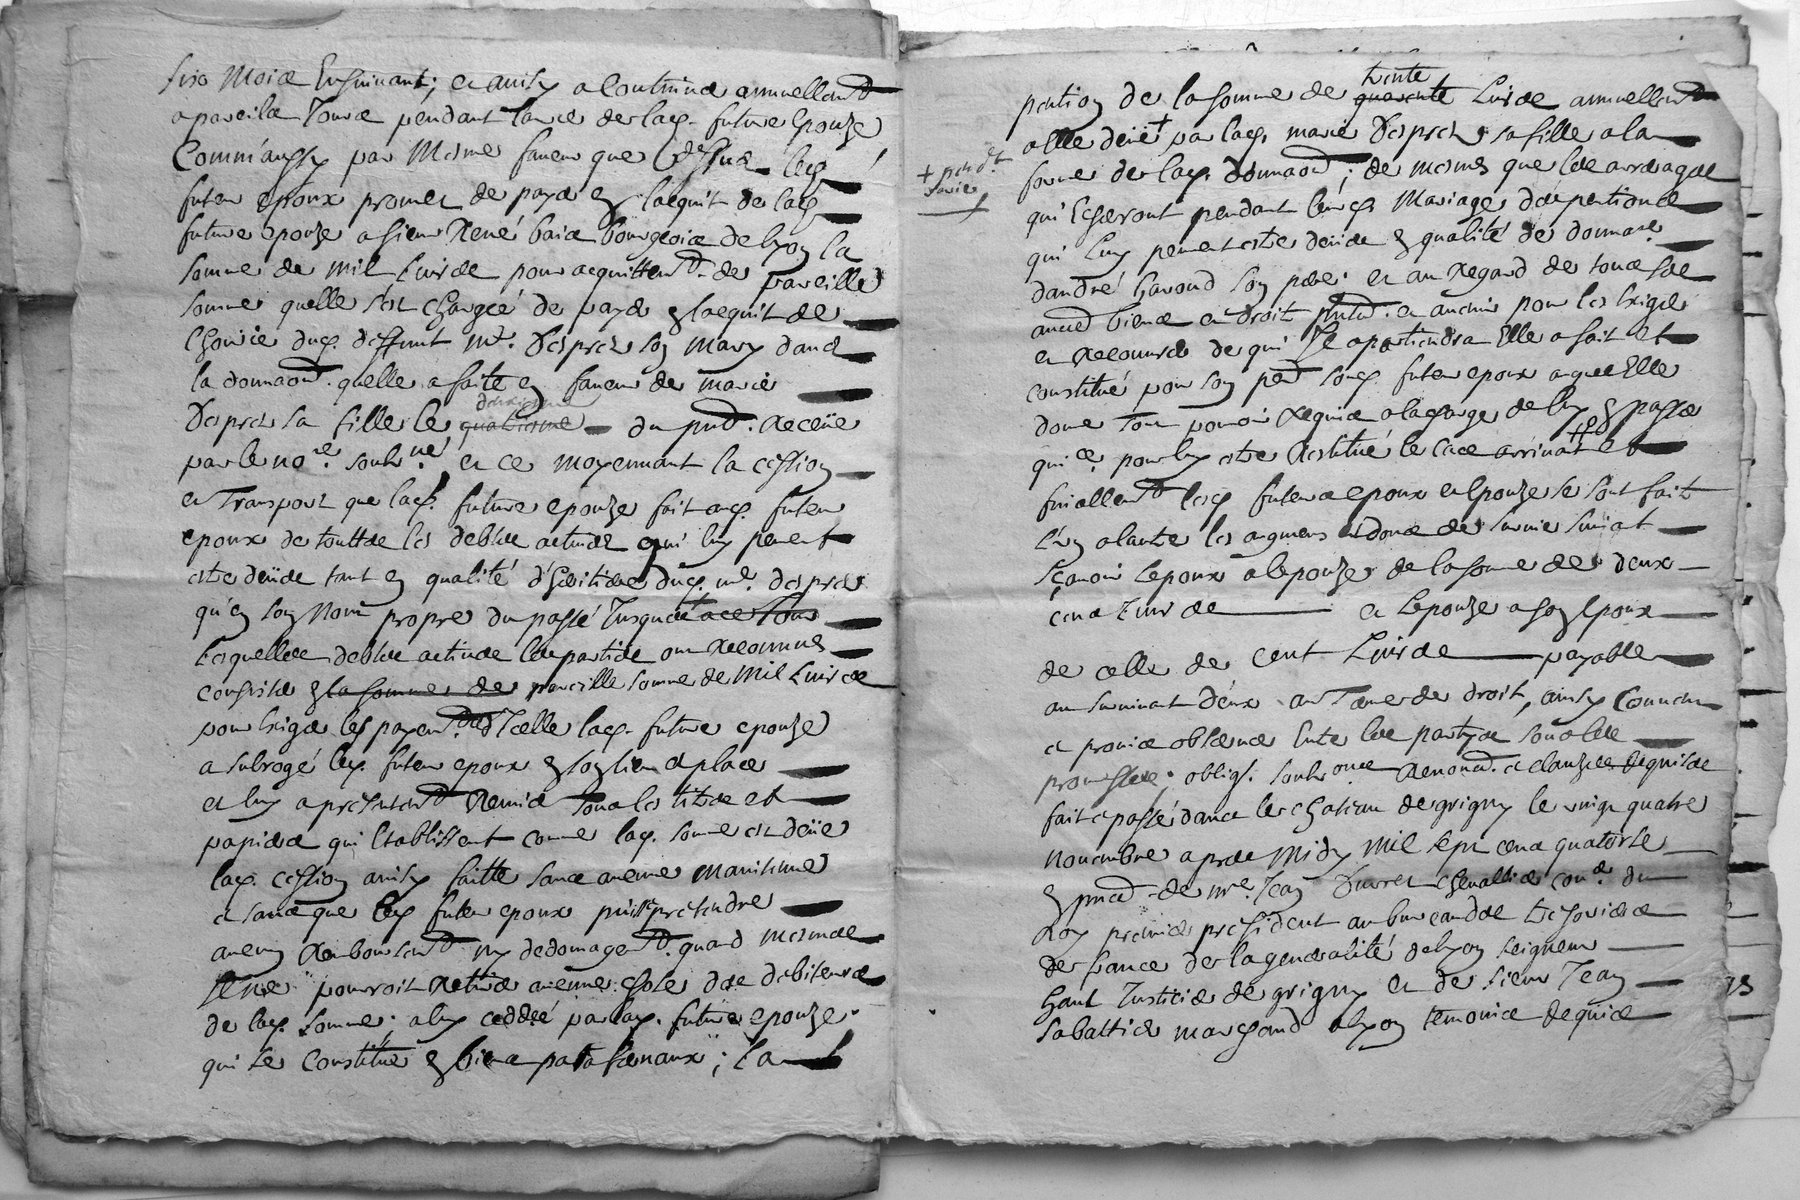 six mois Ensuivant; et ainsy a Continuer annuellemt
a pareils Jours pendant la vie de lad. future Epouze
Comm'aussy par mesme faveur que dessus led.
futur epoux promet de payer en lacquit de lad.
future epouze a sieur René bourgeois de lyon la
somme de mil Livres pour acquittemt. de pareille
somme quelle s'est chargée de payer en lacquit de
L'hoirie dud. deffunt mr. Desprez son mary dans
la donnaon. quelle a faite en faveur de marie
Desprez sa fille le quatriesme du pnt. Receüe
par le nore. soubné. et ce moyennant la cession
et Transport que lad. future epouze fait aud. futur
epoux de touttes les debtes actives qui luy peuvent
estre deües tant en qualité d'heritiere dud. mr. desprez
qu'en son Nom propre du passé Jusques a ce Jour
Lesquelles debtes actives les parties ont Reconnus
consister en la somme de pareille somme de Mil Livres
pour Exiger les payemts. d'Icelle lad. future epouze
a subrogé led. futur epoux en son lieu et place
et luy a presentemt Remis tous les titres et
papiers qui Etablissent comme lad. somme est deüe
lad. cession ainsy faitte sans aucune Maintenue
et sans que led. futur epoux puisse pretendre
aucun Remboursemt. ny dedomagemt. quand mesmes
Il ne pourroit Retirer aucune chose des debiteurs
de lad. somme; a luy ceddée par lad. future epouze.
qui se Constitue en biens paraphernaux; La
pention de la somme de trente quarente Livres annuellemt
a elle deüe + par lad. marie Desprez sa fille a la
+ pendt. sa vie
forme de lad. donnaon; de mesmes que les arrerages
qui Echeront pendant leurd. Mariage des pentions
qui Luy peuvent estre deües en qualité de donnare.
dandré Son pere. et au Regard de tous ses
autres biens et droits pnts. et avenir pour les Exiger
et Recouvrer de qui Il apartiendra Elle a fait et
constitué pour son pr. soud. futur epoux auquel Elle
donne tout pouvoir Requis a la charge de luy en passer
quice. pour luy estre Restitué le cas arrivant et
finallemt lesd. futurs epoux et Epouze se sont fait
L'un a lautre les augmens et dons de survie suivat
sçavoir Lepoux a lepouze de la somme de deux
cens Livres et Lepouze a son Epoux
de celle de cent Livres payable
au survivant d'eux aux Termes de droit, ainsy Convenu
et promis observer Entre les partyes sous les
promesses. oblig. soubons Renond. et clauzes Requises
fait et passé dans le chateau de grigny le vingt quatre
novembre apres Midy mil sept cens quatorse
en pnce. de mre. Jean chevallier conr. du
Roy premier president au bureau des tresoriers
de france de la generalité de lyon seigneur
haut Justicier de grigny et de sieur Jean
Sabattier marchand a lyon temoins Requis